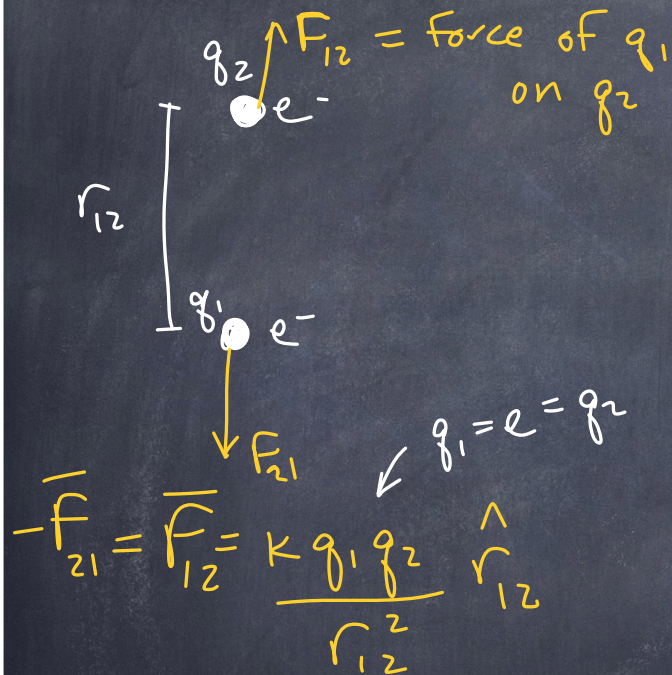 F₁₂ = Force of q₁
on q₂
q₂
e⁻
r₁₂
q₁
e⁻
F₂₁
q₁ = e = q₂
-F̅₂₁ = F̅₁₂ = K q₁ q₂ / r₁₂² r̂₁₂